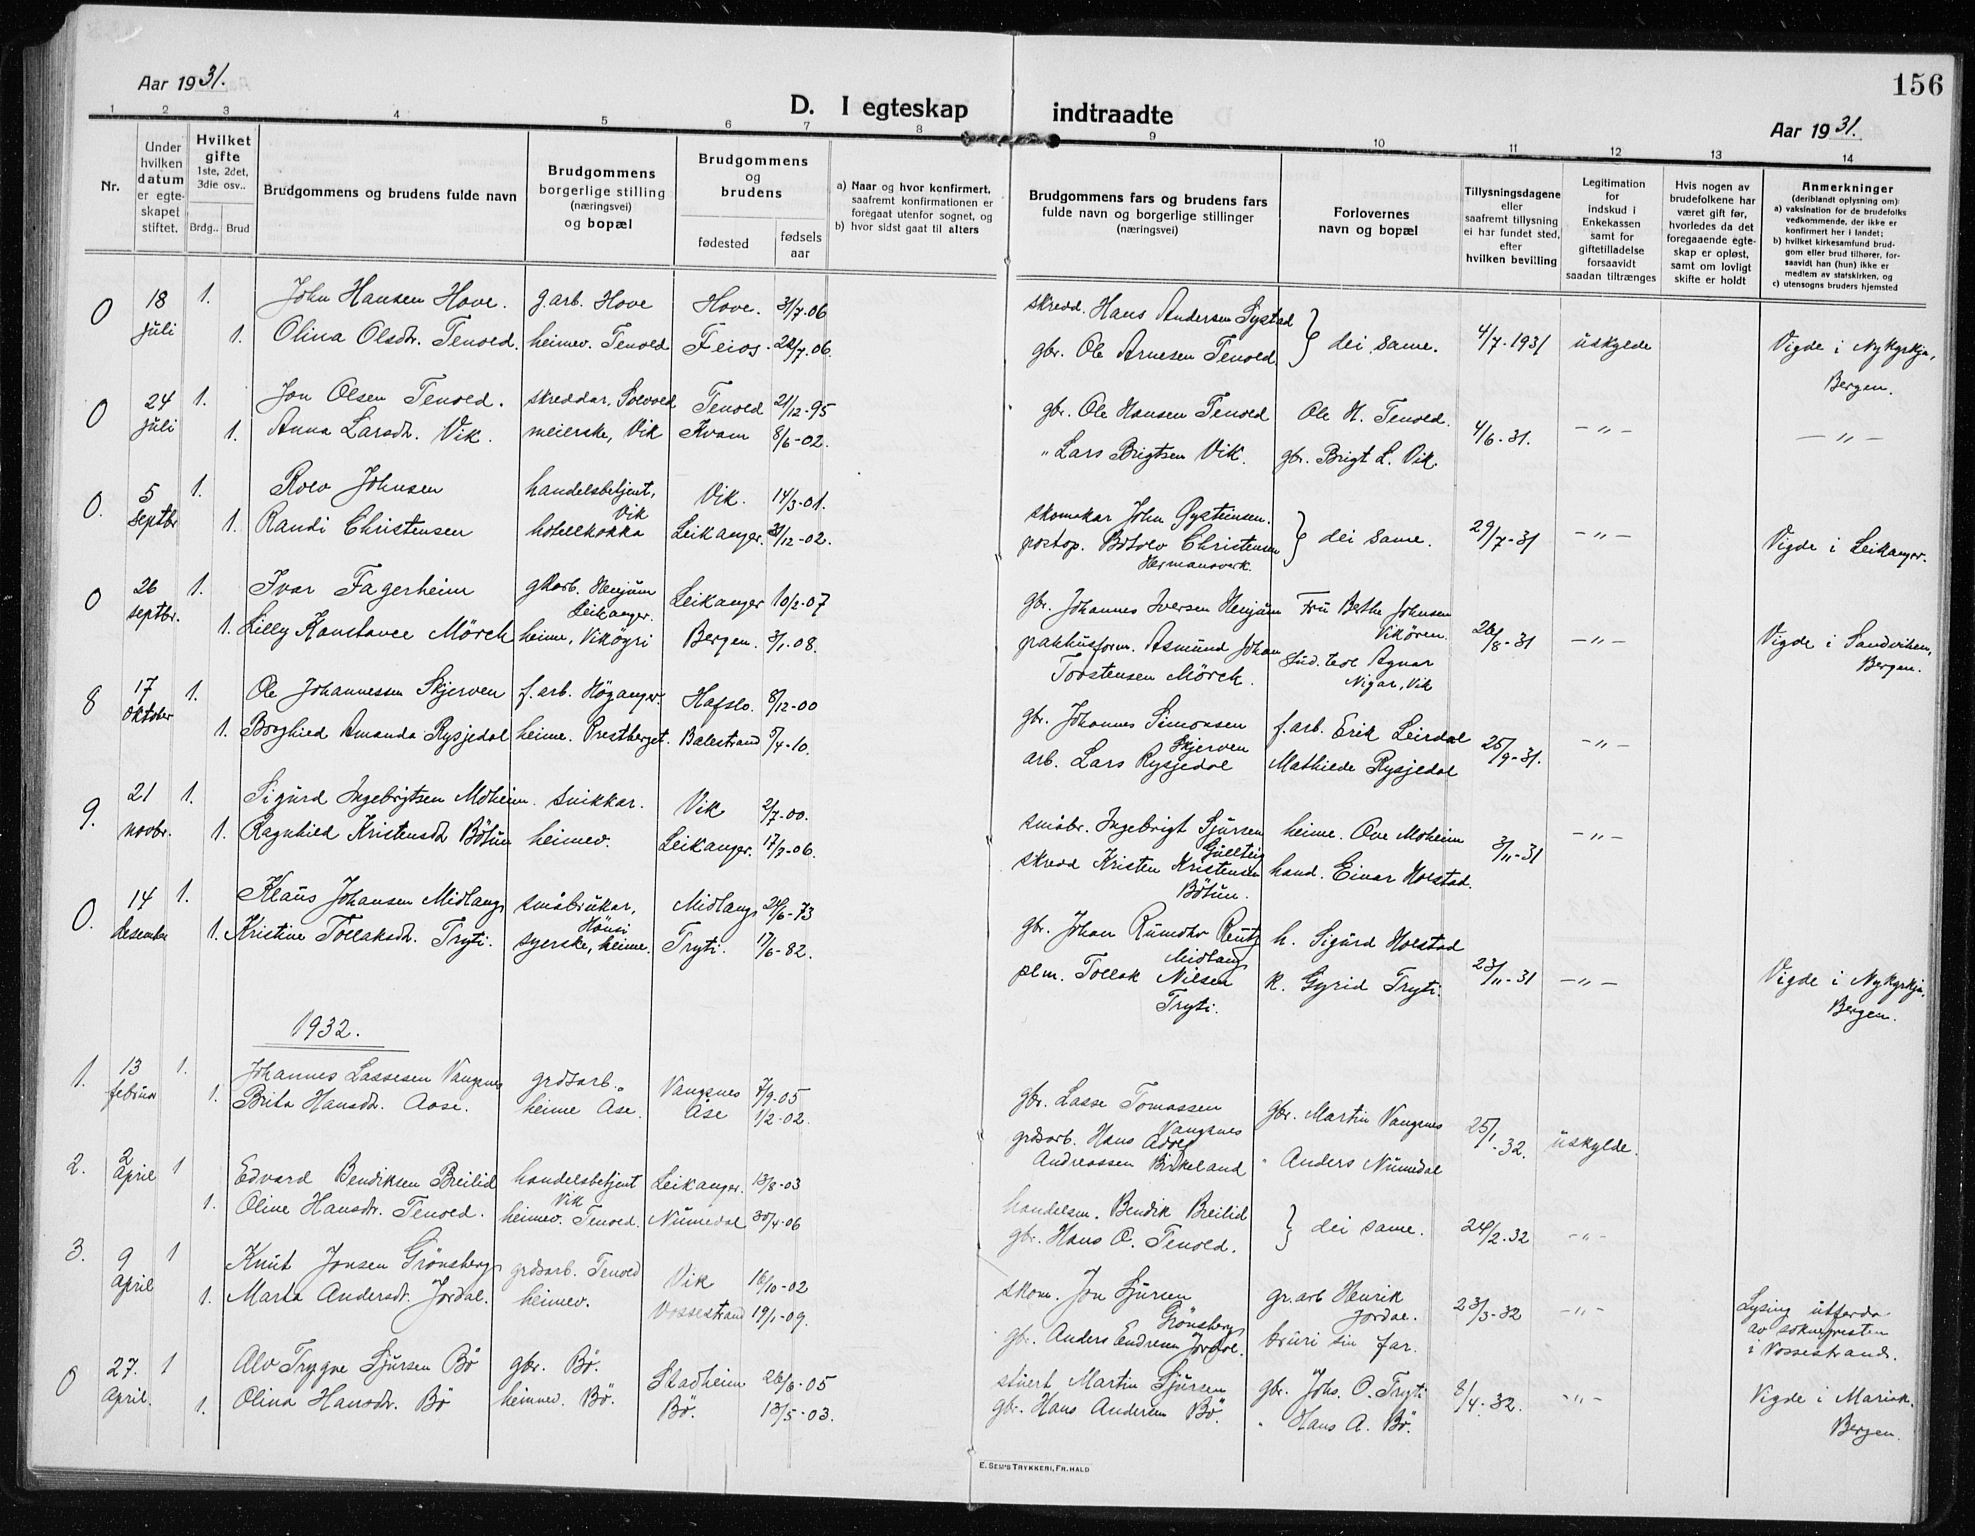 Aar 1931.
156
D. I egteskap indtraadte
Aar 1931.
1 2 3 4 5 6 7 8 9 10 11 12 13 14
Nr.
Under hvilken datum er egteskapet stiftet.
Hvilket gifte 1ste, 2det, 3die osv..
Brdg.. Brud
Brudgommens og brudens fulde navn
Brudgommens borgerlige stilling (næringsvei) og bopæl
Brudgommens og brudens
fødested
fødsels aar
a) Naar og hvor konfirmert, saafremt konfirmationen er foregaat utenfor sognet, og
b) hvor sidst gaat til alters
Brudgommens fars og brudens fars fulde navn og borgerlige stillinger (næringsvei)
Forlovernes navn og bopæl
Tillysningsdagene eller saafremt tillysning ei har fundet sted, efter hvilken bevilling
Legitimation for indskud i Enkekassen samt for giftetilladelse forsaavidt saadan tiltrænges
Hvis nogen av brudefolkene har været gift før, hvorledes da det foregaaende egteskap er opløst, samt om lovligt skifte er holdt
Anmerkninger (deriblandt oplysning om)
a) vaksination for de brudefolks vedkommende, der ikke er konfirmert her i landet;
b) hvilket kirkesamfund brudgom eller brud tilhører, forsaavidt han (hun) ikke er medlem av statskirken, og
c) utensogns bruders hjemsted
0 18 juli 1. John Hansen Hove. g.arb. Hove Hove. 31/7-06 skredd. Hans Andersen Systad } dei same. 4/7-1931 uskylde Vigde i Nykyrkja, Bergen.
1. Olina Olsdtr. Tenold. heimev. Tenold Feios 22/7-06. gbr. Ole Arnesen Tenold
0 24 juli 1. Jon Olsen Tenold. skreddar, Solvold Tenold 21/12-95 gbr. Ole Hansen Tenold Ole H. Tenold. 4/6-31. -"- -"-
1. Anna Larsdtr. Vik. meierske, Vik Kvam 8/6-02. " Lars Brigtsen Vik. gbr. Brigt L. Vik.
0. 5 septbr 1. Rolv Johnsen handelsbetjent, Vik Vik. 14/3-01. skomakar John Øysteinsen. } dei same. 29/7-31 -"- Vigde i Leikanger.
1. Randi Christensen hotellkokka Leikanger. 31/12-02. postop. Botolv Christensen Hermansverk.
0 26 septbr. 1. Ivar Fagerheim gbarb. Henjum Leikanger. Leikanger 10/2-07 gbr. Johannes Iversen Henjum Frú Berthe Johnsen Vikören. 26/8-31 -"- Vigde i Sandviken, Bergen.
1. Lilly Konstance Mörch heime, Vikøyri Bergen. 3/1.08. pakhusform. Asmund Johan Torstensen Mörch. stud. teol Agnar Nigar, Vik
8 17 oktober 1. Ole Johannessen Skjerven f.arb. Höyanger. Hafslo. 8/12-00 gbr. Johannes Simonsen Skjerven f.arb. Erik Leirdal 25/9-31. -"-
1. Borghild Amanda Rysjedal heime. Prestberget. Balestrand 5/4-10. arb. Lars Rysjedal Mathilde Rysjedal
9. 21 novbr. 1. Sigurd Ingebrigtsen Moheim. snikkar. Vik 2/7-00. småbr. Ingebrigt Sjursen Gullteig heime. Ove Moheim 3/11-31 -"-
1. Ragnhild Kristensdtr Bötun heimev. Leikanger. 17/7-06. skredd Kristen Kristensen Bötun. hand. Einar Holstad.
0. 14 desember 1. Klaus Johansen Midlang småbrukar, Hönsi Midlang 26/6-73 gbr. Johan Rumohr Rentz Midlang h. Sigurd Holstad 23/11-31 -"- Vigde i Nykyrkja, Bergen.
1. Kristine Tollaksdtr. Tryti. syerske, heime. Tryti. 17/6-82. plm. Tollak Nilsen Tryti. k. Gyrid Tryti.
1932.
1. 13 februar 1. Johannes Lassesen Vangsnes grdsarb. " Vangsnes 7/9-05 gbr. Lasse Tomassen Vangsnes gbr. Martin Vangsnes 25/1-32. uskylde.
1. Brita Hansdtr. Aase. heime Åse. Åse 1/2-02. grdsarb. Hans Adolf Andreassen Birkeland " Anders Numedal
2. 2 april 1 Edvard Bendiksen Breilid handelsbetjent Vik Leikanger. 13/8-03 handelsm. Bendik Breilid } dei same. 24/2.32 -"-
1. Oline Hansdtr. Tenold. heimev. Tenold. Numedal 30/4-06 gbr. Hans O. Tenold.
3. 9 april 1 Knut Jonsen Grönsberg grdsarb. Tenold Vik 16/10-02 skom. Jon Sjursen Grönsberg gr.arb Henrik Jordal. 23/3-32 -"- Lysing utferda av soknepresten i Vossestrand.
1. Marta Andersdtr. Jordal. heimev. Vossestrand 19/1-09. gbr. Anders Endresen Jordal. bruri sin far.
0 27. april. 1 Alv Trygve Sjursen Bø gbr. Bø. Stadheim 26/6-05 stuert Martin Sjursen gbr. Johs. O. Tryti 8/4.32. -"- Vigde i Mariak. Bergen.
1. Olina Hansdtr. Bø heimev. Bø. Bø. 13/5-03. gbr. Hans Andersen Bø. " Hans A. Bø.
E. SEM'S TRYKKERI, FR.HALD